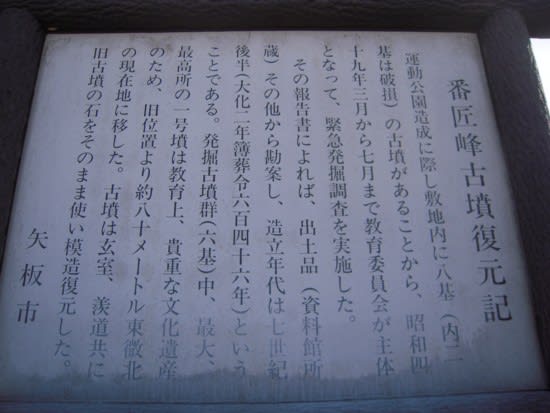 番匠峰古墳復元記
運動公園造成に際し敷地内に八基(内二
基は破損)の古墳があることから、昭和四
十九年三月から七月まで教育委員会が主体
となって、緊急発掘調査を実施した。
その報告書によれば、出土品(資料館所
蔵)その他から勘案し、造立年代は七世紀
後半(大化二年簿葬令六百四十六年)という
ことである。発掘古墳群(六基)中、最大、
最高所の一号墳は教育上、貴重な文化遺産
のため、旧位置より約八十メートル東微北
の現在地に移した。古墳は玄室、羨道共に
旧古墳の石をそのまま使い模造復元した。
矢板市